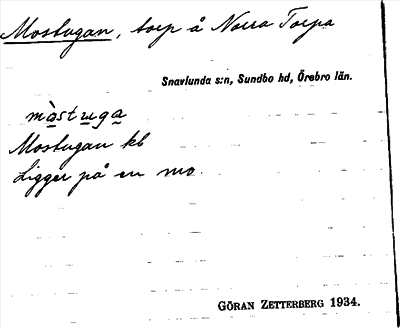 Mostugan, torp å Norra Torpa
Snavlunda s:n, Sundbo hd, Örebro län.
màstuga
Mostugan kb
Ligger på en mo.
GÖRAN ZETTERBERG 1934.